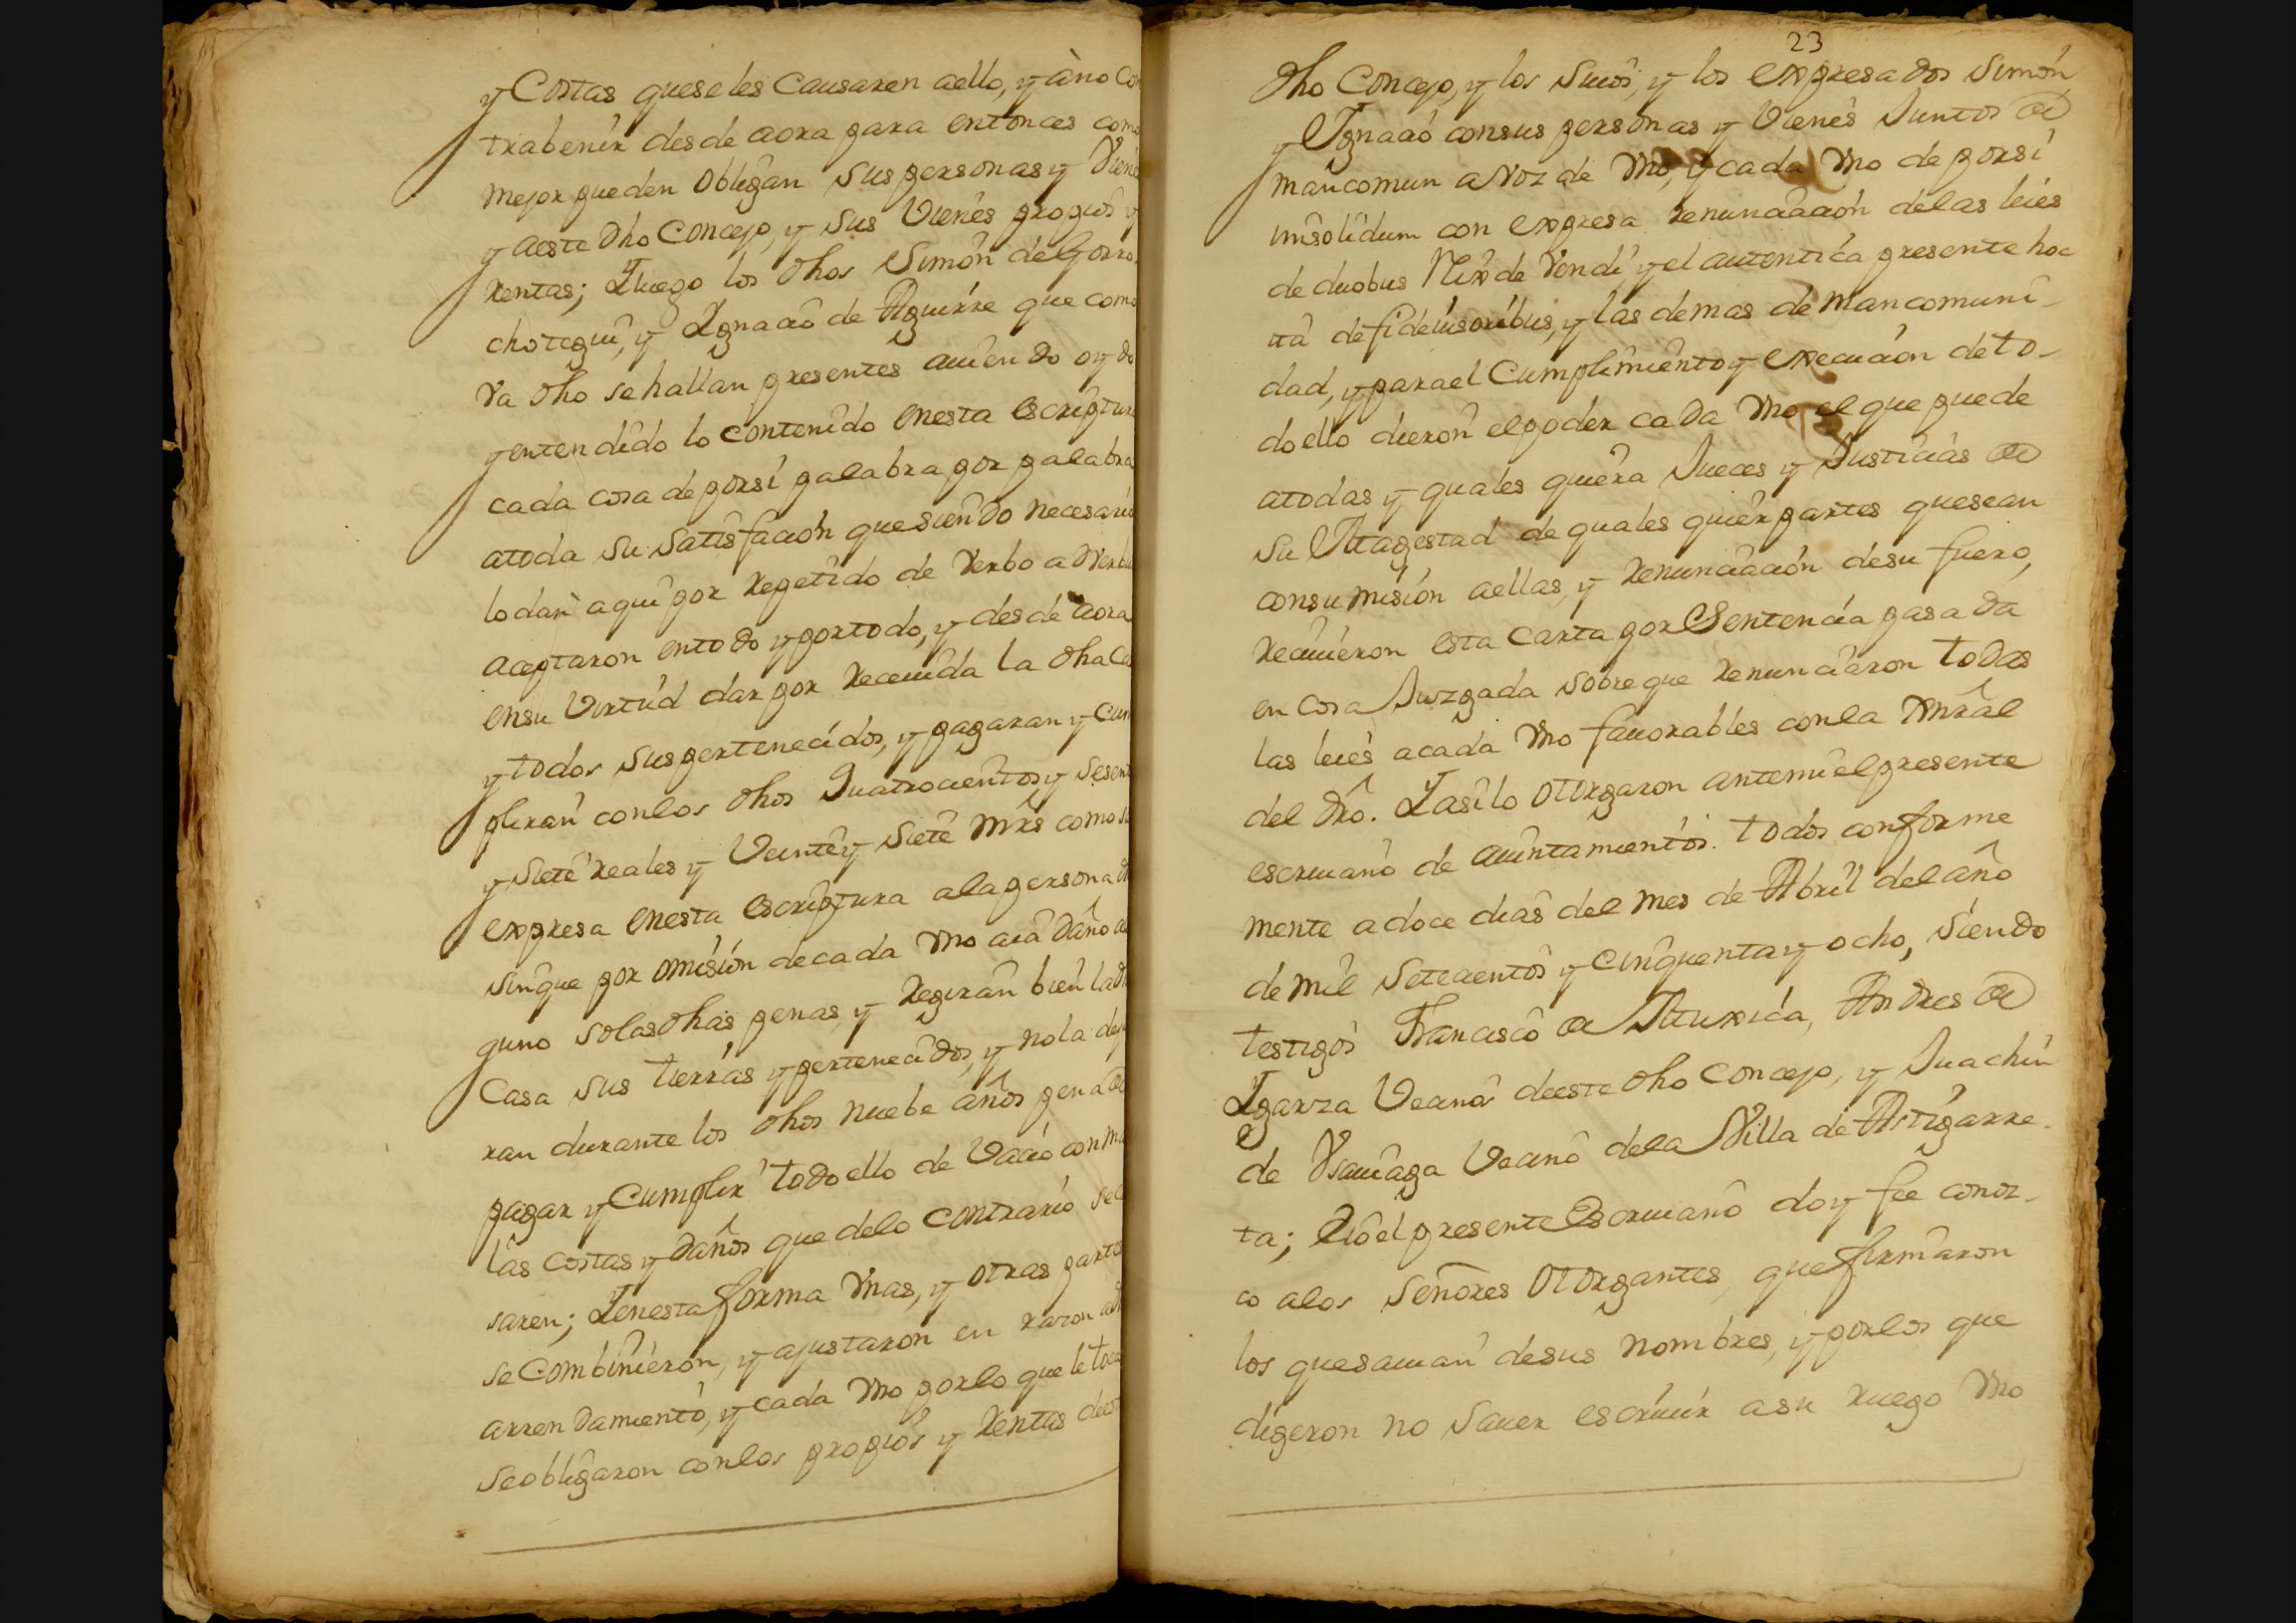 y Costas quese les Causaren aello, y àno Con
trabenir desde aora para entonces como
mejor pueden obligan sus personas y Viene
y aeste dho Concejo, y sus Vienes propios y
Rentas; Iluego los dhos Simòn de Gorro
chotegui, y Ignacio de Aguirre que como
Va dho se hallan presentes auiendo oydo
y entendido lo contenido enesta escriptura
cada cosa de porsi palabra por palabra
atoda su satisfación que siendo necesario
lo dan aqui por Repetido de Verbo a Verbu
aceptaron entodo y portodo, y desde aora
ensu Virtud dar por Receuida la dha Ca
y todos sus pertenecidos, y pagaran y Cum
pliran conlos dhos Quatrocientos y Sesent
y siete Reales y Veinte y siete mrs como se
expresa enesta escriptura ala persona de
sinque por omisión decada vno aia daño al
guno solas dhas penas, y Regiran bien la dh
Casa sus tierras y pertenecidos, y nola deja
ran durante los dhos nuebe años pena de
pagar y Cumplir todo ello de Vacio con ma
las costas y daños que delo contrario se ca
saren; I enesta forma Vnas, y otras partes
se Combinieron, y ajustaron en razon al
arrendamiento, y cada vno porlo que le toca
se obligaron conlos propios y Rentas deest
23
dho Concejo, y los suios, y los expresados Simòn
y Ignacio consus personas y Vienes Juntos de
mancomun a Voz de vno, y cada vno de porsi
imsolidum con expresa renunciación delas leies
de duobus Rex de Vendi y el autentica presente hoc
ita de fideiusoribus, y las demas de Mancomuni-
dad, y parael Cumplimiento y execucion deto-
do ello dieron el poder cada vno el que puede
atodas y quales quiera Jueces y Justicias de
su Magestad de quales quier partes quesean
consumisión aellas, y Renunciación desu fuero,
Reciuieron esta Carta por Sentencia pasada
en cosa Juzgada sobre que Renunciaron todas
las leies acada vno fauorables conla Gnral
del dro. I asilo otorgaron antemi el presente
escriuano de aiuntamientos. todos conforme
mente adoce dias del mes de Abril del año
de mil setecientos y cinquenta y ocho, siendo
testigos Francisco de Muxica, Andres de
Igarza Vecinos deeste dho Concejo, y Juachin
de Vsauiaga Vecino dela Villa de Astigarre-
ta; E io el presente Escriuano doy fee conoz-
co alos Señores Otorgantes, que firmaron
los quesauian desus nombres, y porlos que
digeron no sauer escriuir asu ruego vno